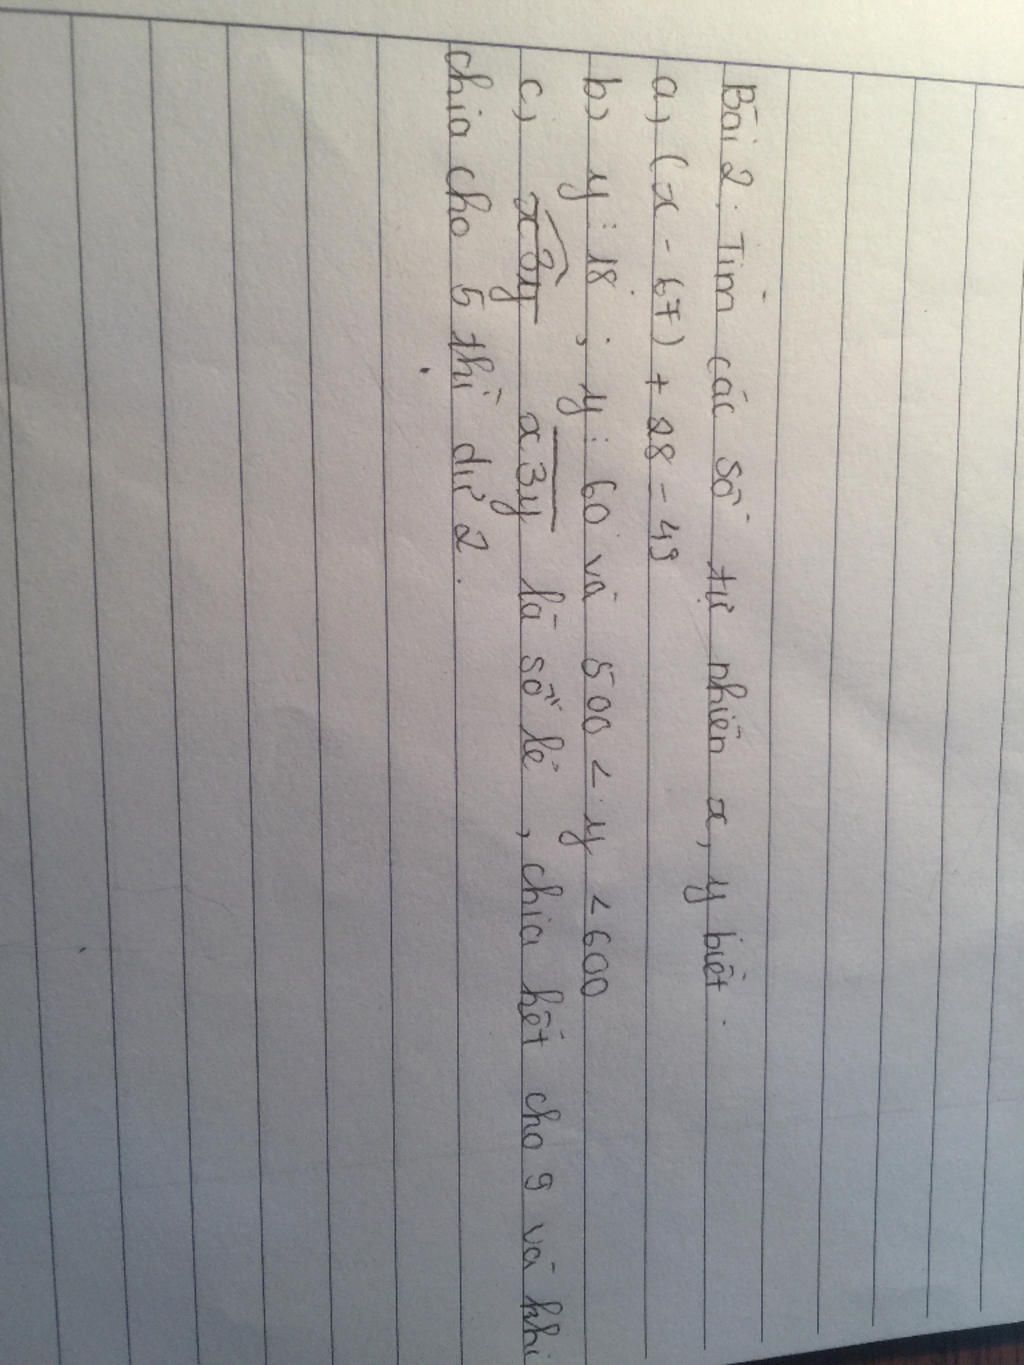 Bài 2: Tìm các số tự nhiên x, y biết.
a, (x - 67) + 28 = 49
b) y ⋮ 18 ; y ⋮ 60 và 500 < y < 600
c, x3y là số lẻ, chia hết cho 9 và khi
chia cho 5 thì dư 2.